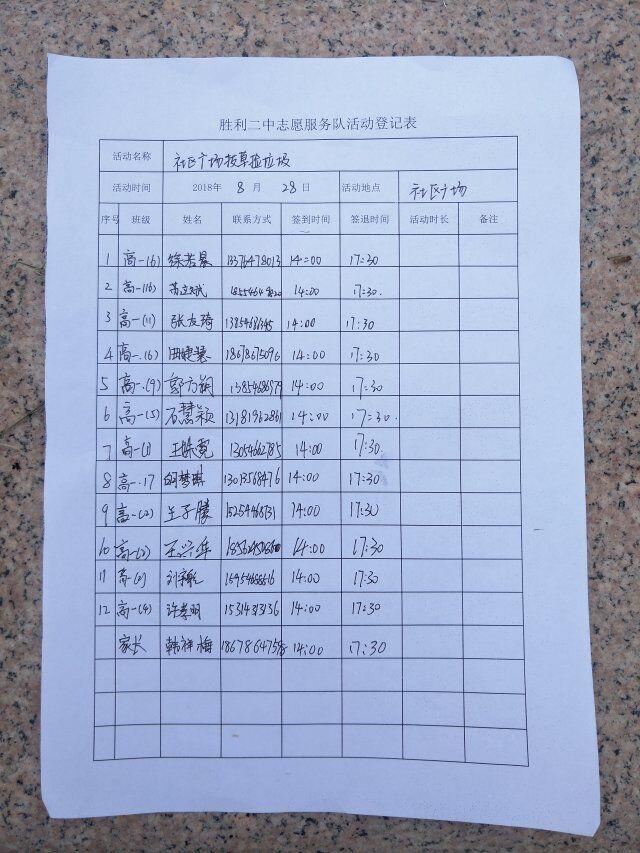 胜利二中志愿服务队活动登记表
活动名称 社区广场拔草捡垃圾
活动时间 2018年 8 月 28 日 活动地点 社区广场
序号 班级 姓名 联系方式 签到时间 签退时间 活动时长 备注
1 高一(6) 徐若晨 13376478013 14:00 17:30
2 高一(16) 14:00 17:30.
3 高一(11) 张友琦 14:00 17:30
4 高一.(6) 18678675096 14:00 17:30
5 高一.(9) 13854686979 14:00 17:30
6 高一(5) 石慧颖 13181962861 14:00 17:30.
7 高一 13054662785 14:00 17:30
8 高一.17 胡梦琪 13013568476 14:00 17:30
9 高一(2) 王子腾 14:00 17:30
10 高一 王兴华 14:00 17:30
11 高 14:00 17:30
12 高一(4) 许孝明 15314313136 14:00 17:30
家长 韩祥梅 14:00 17:30